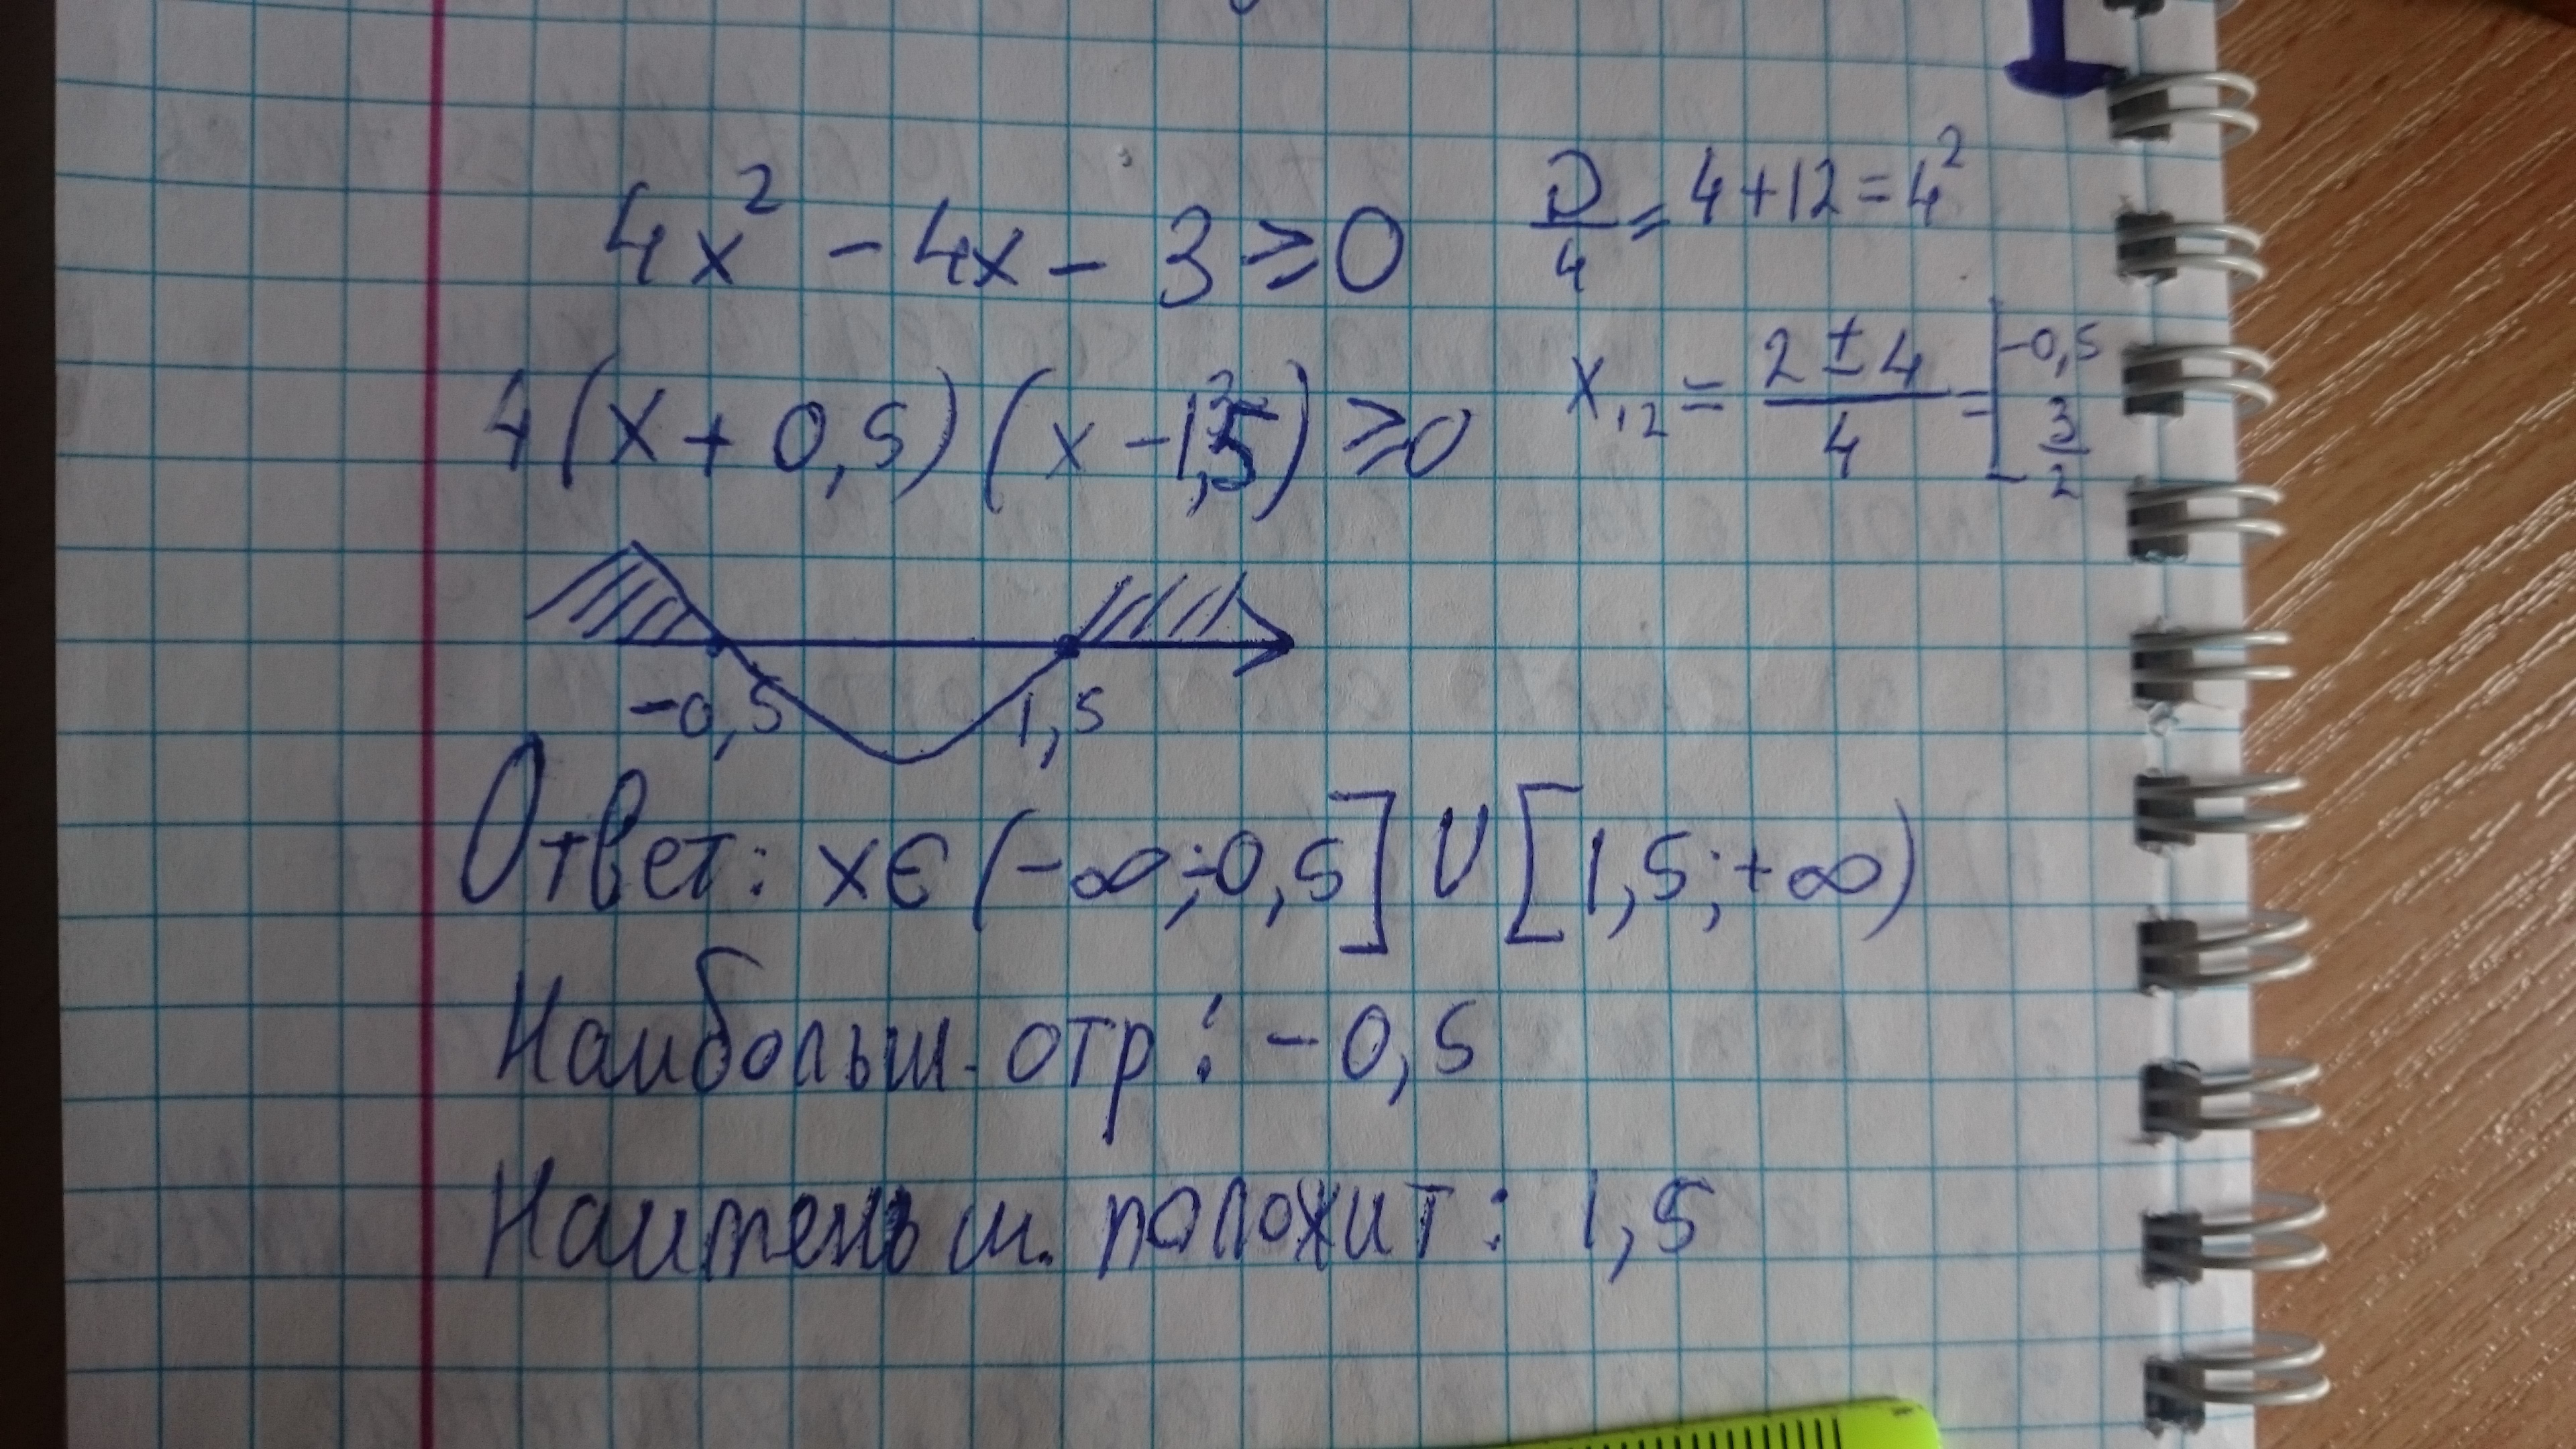 4x² - 4x - 3 ⩾ 0
D/4 = 4 + 12 = 4²
4(x + 0,5)(x - 1,5) ⩾ 0
x₁₂ = (2 ± 4)/4 = [-0,5
3/2
-0,5 1,5
Ответ: x ∈ (-∞; -0,5] ∪ [1,5; +∞)
Наибольш. отр: -0,5
Наименьш. положит: 1,5